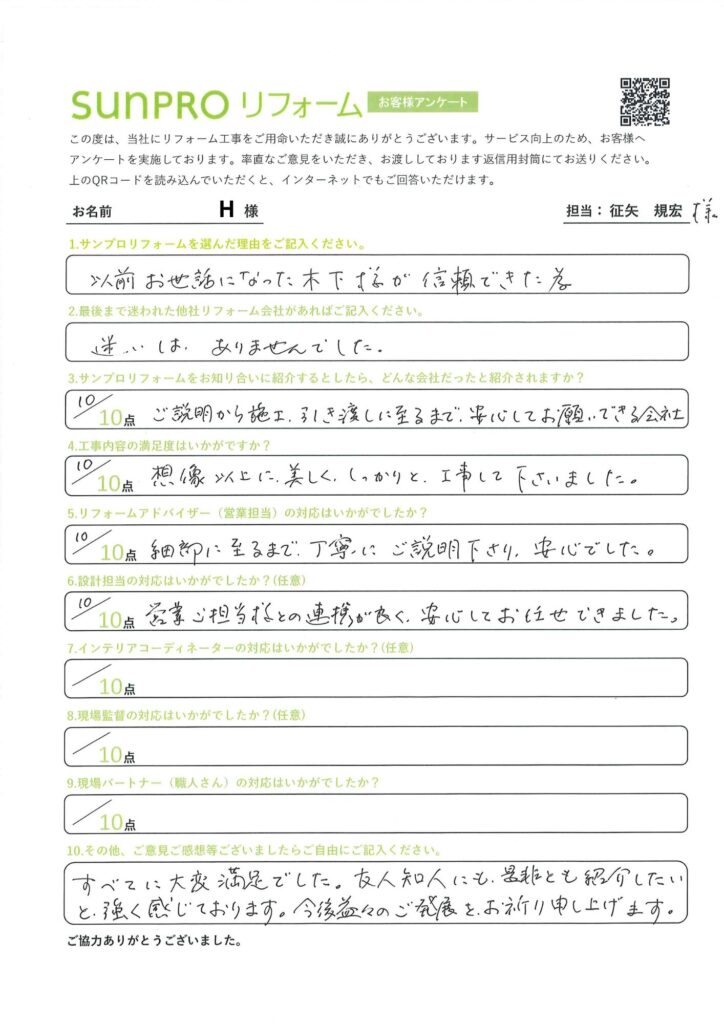 SUNPRO リフォーム お客様アンケート
この度は、当社にリフォーム工事をご用命いただき誠にありがとうございます。サービス向上のため、お客様へ
アンケートを実施しております。率直なご意見をいただき、お渡ししております返信用封筒にてお送りください。
上のQRコードを読み込んでいただくと、インターネットでもご回答いただけます。
お名前 H 様 担当：征矢 規宏 様
1.サンプロリフォームを選んだ理由をご記入ください。
以前お世話になった木下様が信頼できた為
2.最後まで迷われた他社リフォーム会社があればご記入ください。
迷いは、ありませんでした。
3.サンプロリフォームをお知り合いに紹介するとしたら、どんな会社だったと紹介されますか？
10/10点 ご説明から施工、引き渡しに至るまで、安心してお願いできる会社
4.工事内容の満足度はいかがですか？
10/10点 想像以上に、美しく、しっかりと、工事して下さいました。
5.リフォームアドバイザー（営業担当）の対応はいかがでしたか？
10/10点 細部に至るまで、丁寧にご説明下さり、安心でした。
6.設計担当の対応はいかがでしたか？(任意)
10/10点 営業ご担当様との連携が良く、安心してお任せできました。
7.インテリアコーディネーターの対応はいかがでしたか？(任意)
/10点
8.現場監督の対応はいかがでしたか？(任意)
/10点
9.現場パートナー（職人さん）の対応はいかがでしたか？
/10点
10.その他、ご意見ご感想等ございましたらご自由にご記入ください。
すべてに大変満足でした。友人知人にも、是非とも紹介したい
と、強く感じております。今後益々のご発展を、お祈り申し上げます。
ご協力ありがとうございました。